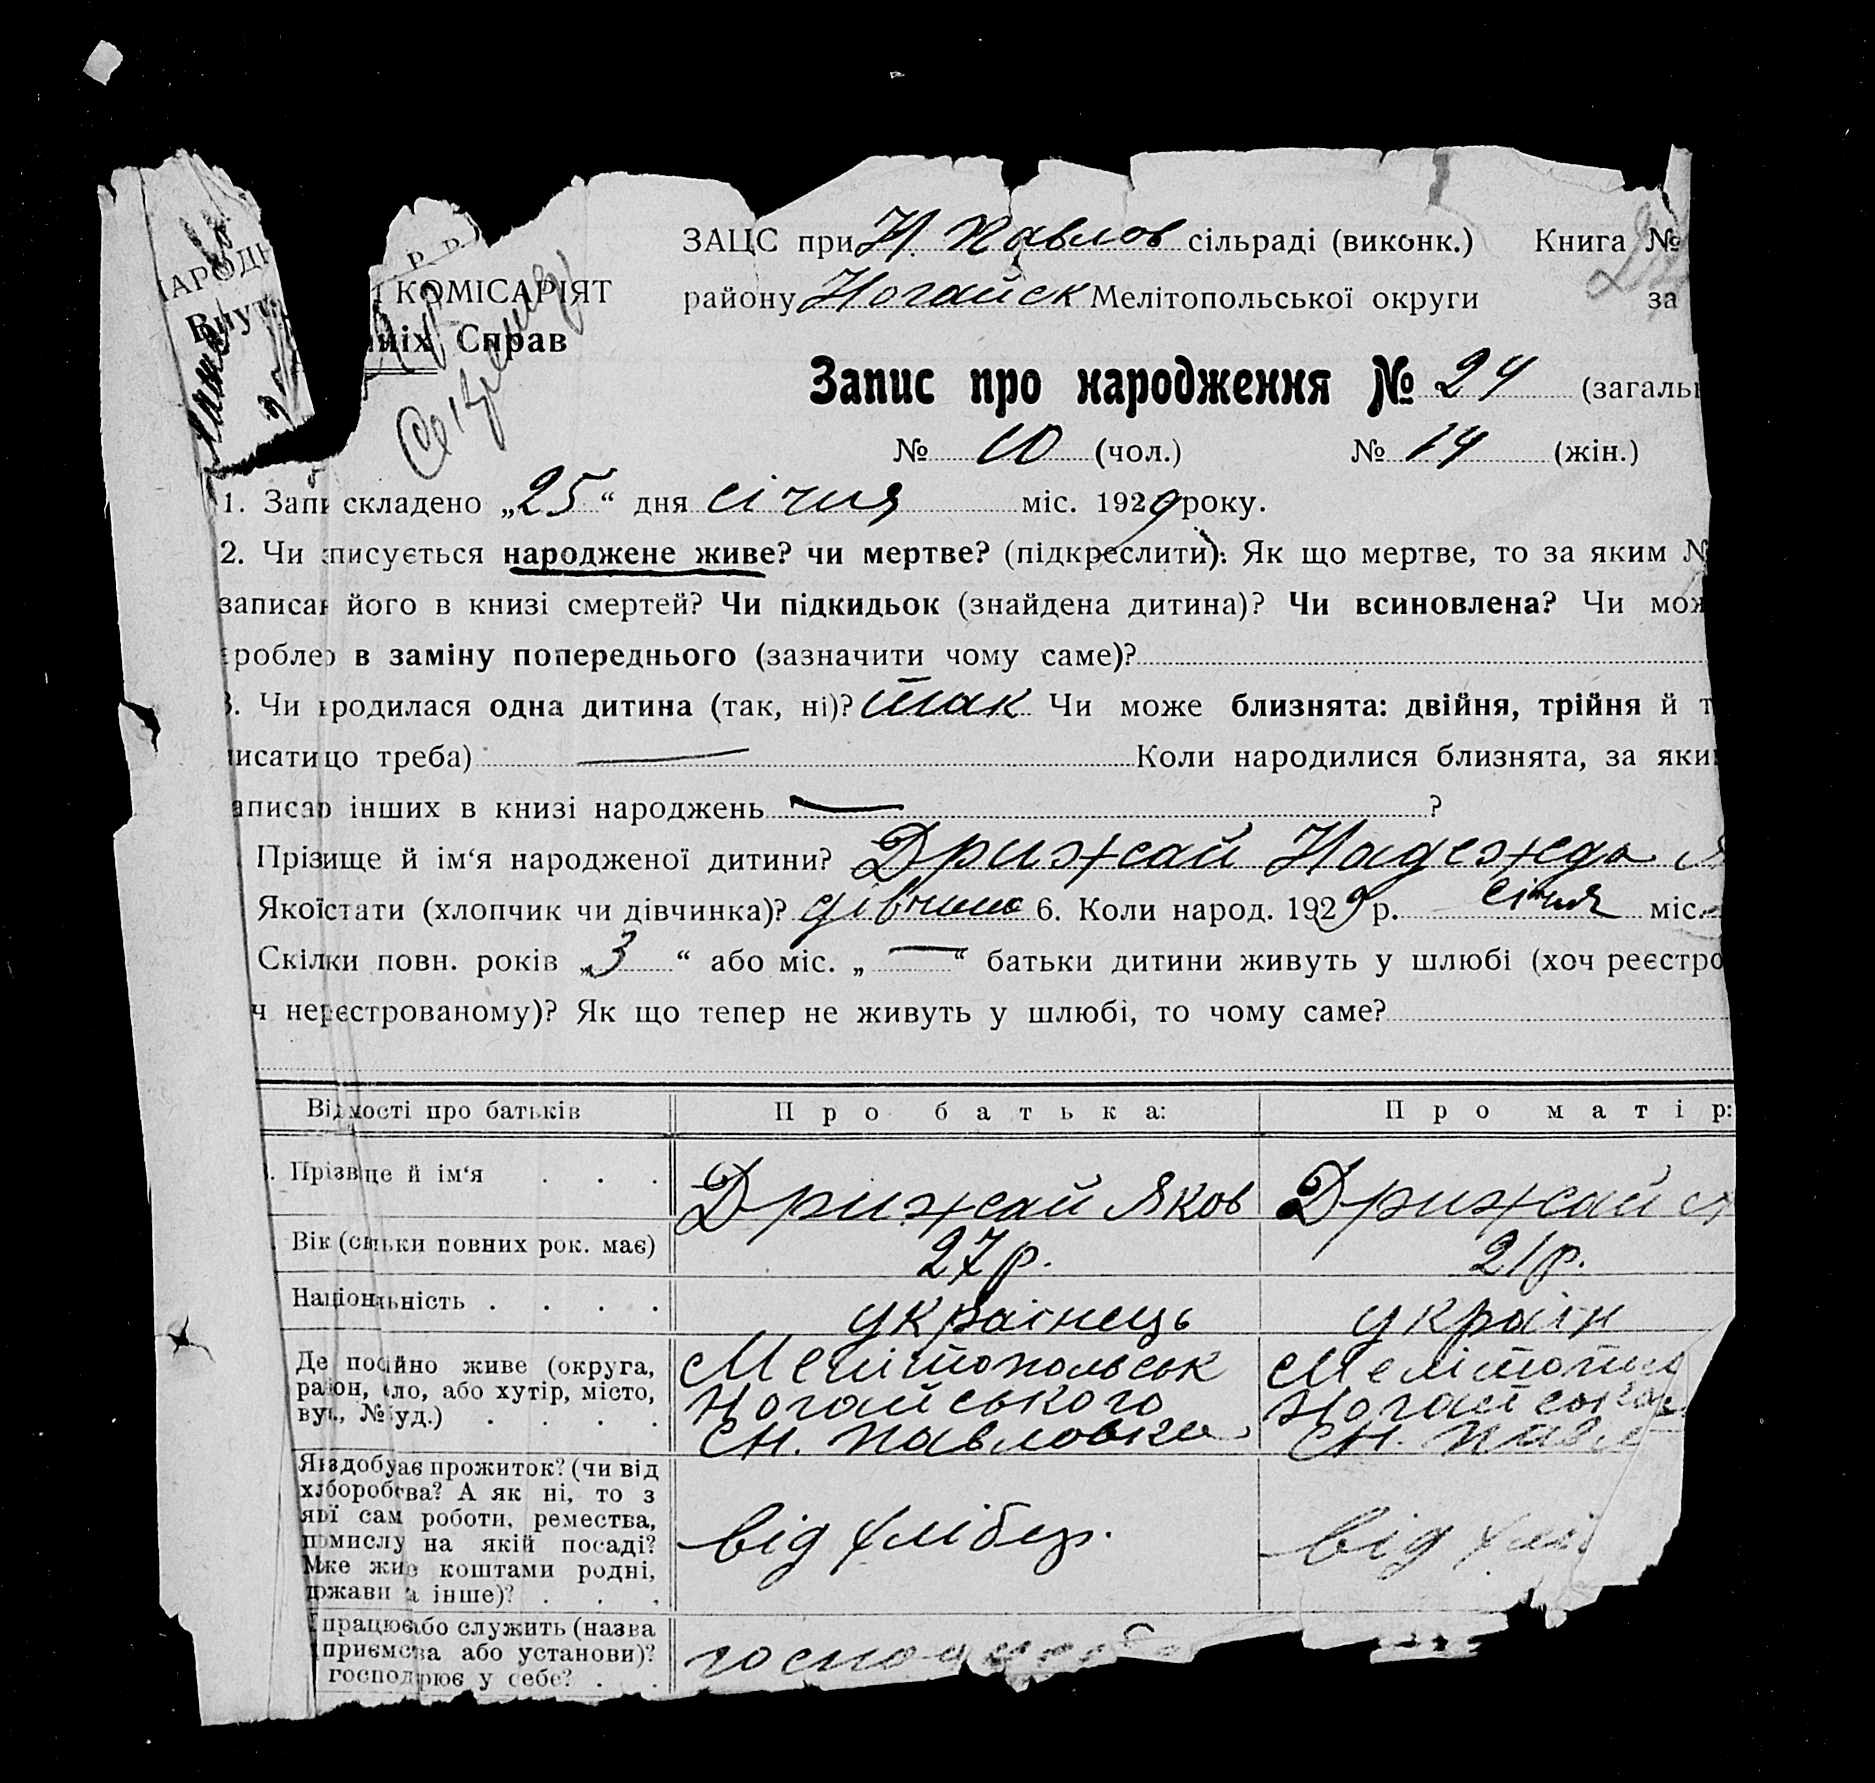 ЗАЦС при Н. Павлов сільраді (виконк.) Книга №
КОМІСАРІЯТ
району Ногайск Мелітопольської округи за
Справ
Запис про народження № 24 (загальн
№ 10 (чол.) № 14 (жін.)
1. Запи складено „25“ дня січня міс. 1929 року.
2. Чи писується народжене живе? чи мертве? (підкреслити). Як що мертве, то за яким №
записан його в книзі смертей? Чи підкидьок (знайдена дитина)? Чи всиновлена? Чи мож
робле в заміну попереднього (зазначити чому саме)?
3. Чи родилася одна дитина (так, ні)? так Чи може близнята: двійня, трійня й т
исати що треба) — Коли народилися близнята, за яки
аписан інших в книзі народжень — ?
Прізвище й ім‘я народженої дитини? Дрижай Надежда Я
Якої стати (хлопчик чи дівчинка)? дівчина 6. Коли народ. 1929 р. січня міс.
Скілки повн. років „3“ або міс. „—“ батьки дитини живуть у шлюбі (хоч реєстро
ч нереєстрованому)? Як що тепер не живуть у шлюбі, то чому саме?
Відомості про батьків Про батька: Про матір:
Прізвище й ім‘я . . . Дрижай Яков Дрижай
Вік (скільки повних рок. має) 27 р. 21 р.
Національність . . . . українець україн
Де постійно живе (округа, Мелітопольськ Мелітопол
район, село, або хутір, місто, Ногайського Ногайського
вул., № буд.) . . . . с Н. Павловки с Н. Павл
Як здобуває прожиток? (чи від
хліборобства? А як ні, то з
якої сам роботи, ремества, від хлібор. від хлі
промислу на якій посаді?
Може живе коштами родні,
держави та інше)? . . .
працює або служить (назва
приємства або установи)?
господарює у себе? . .